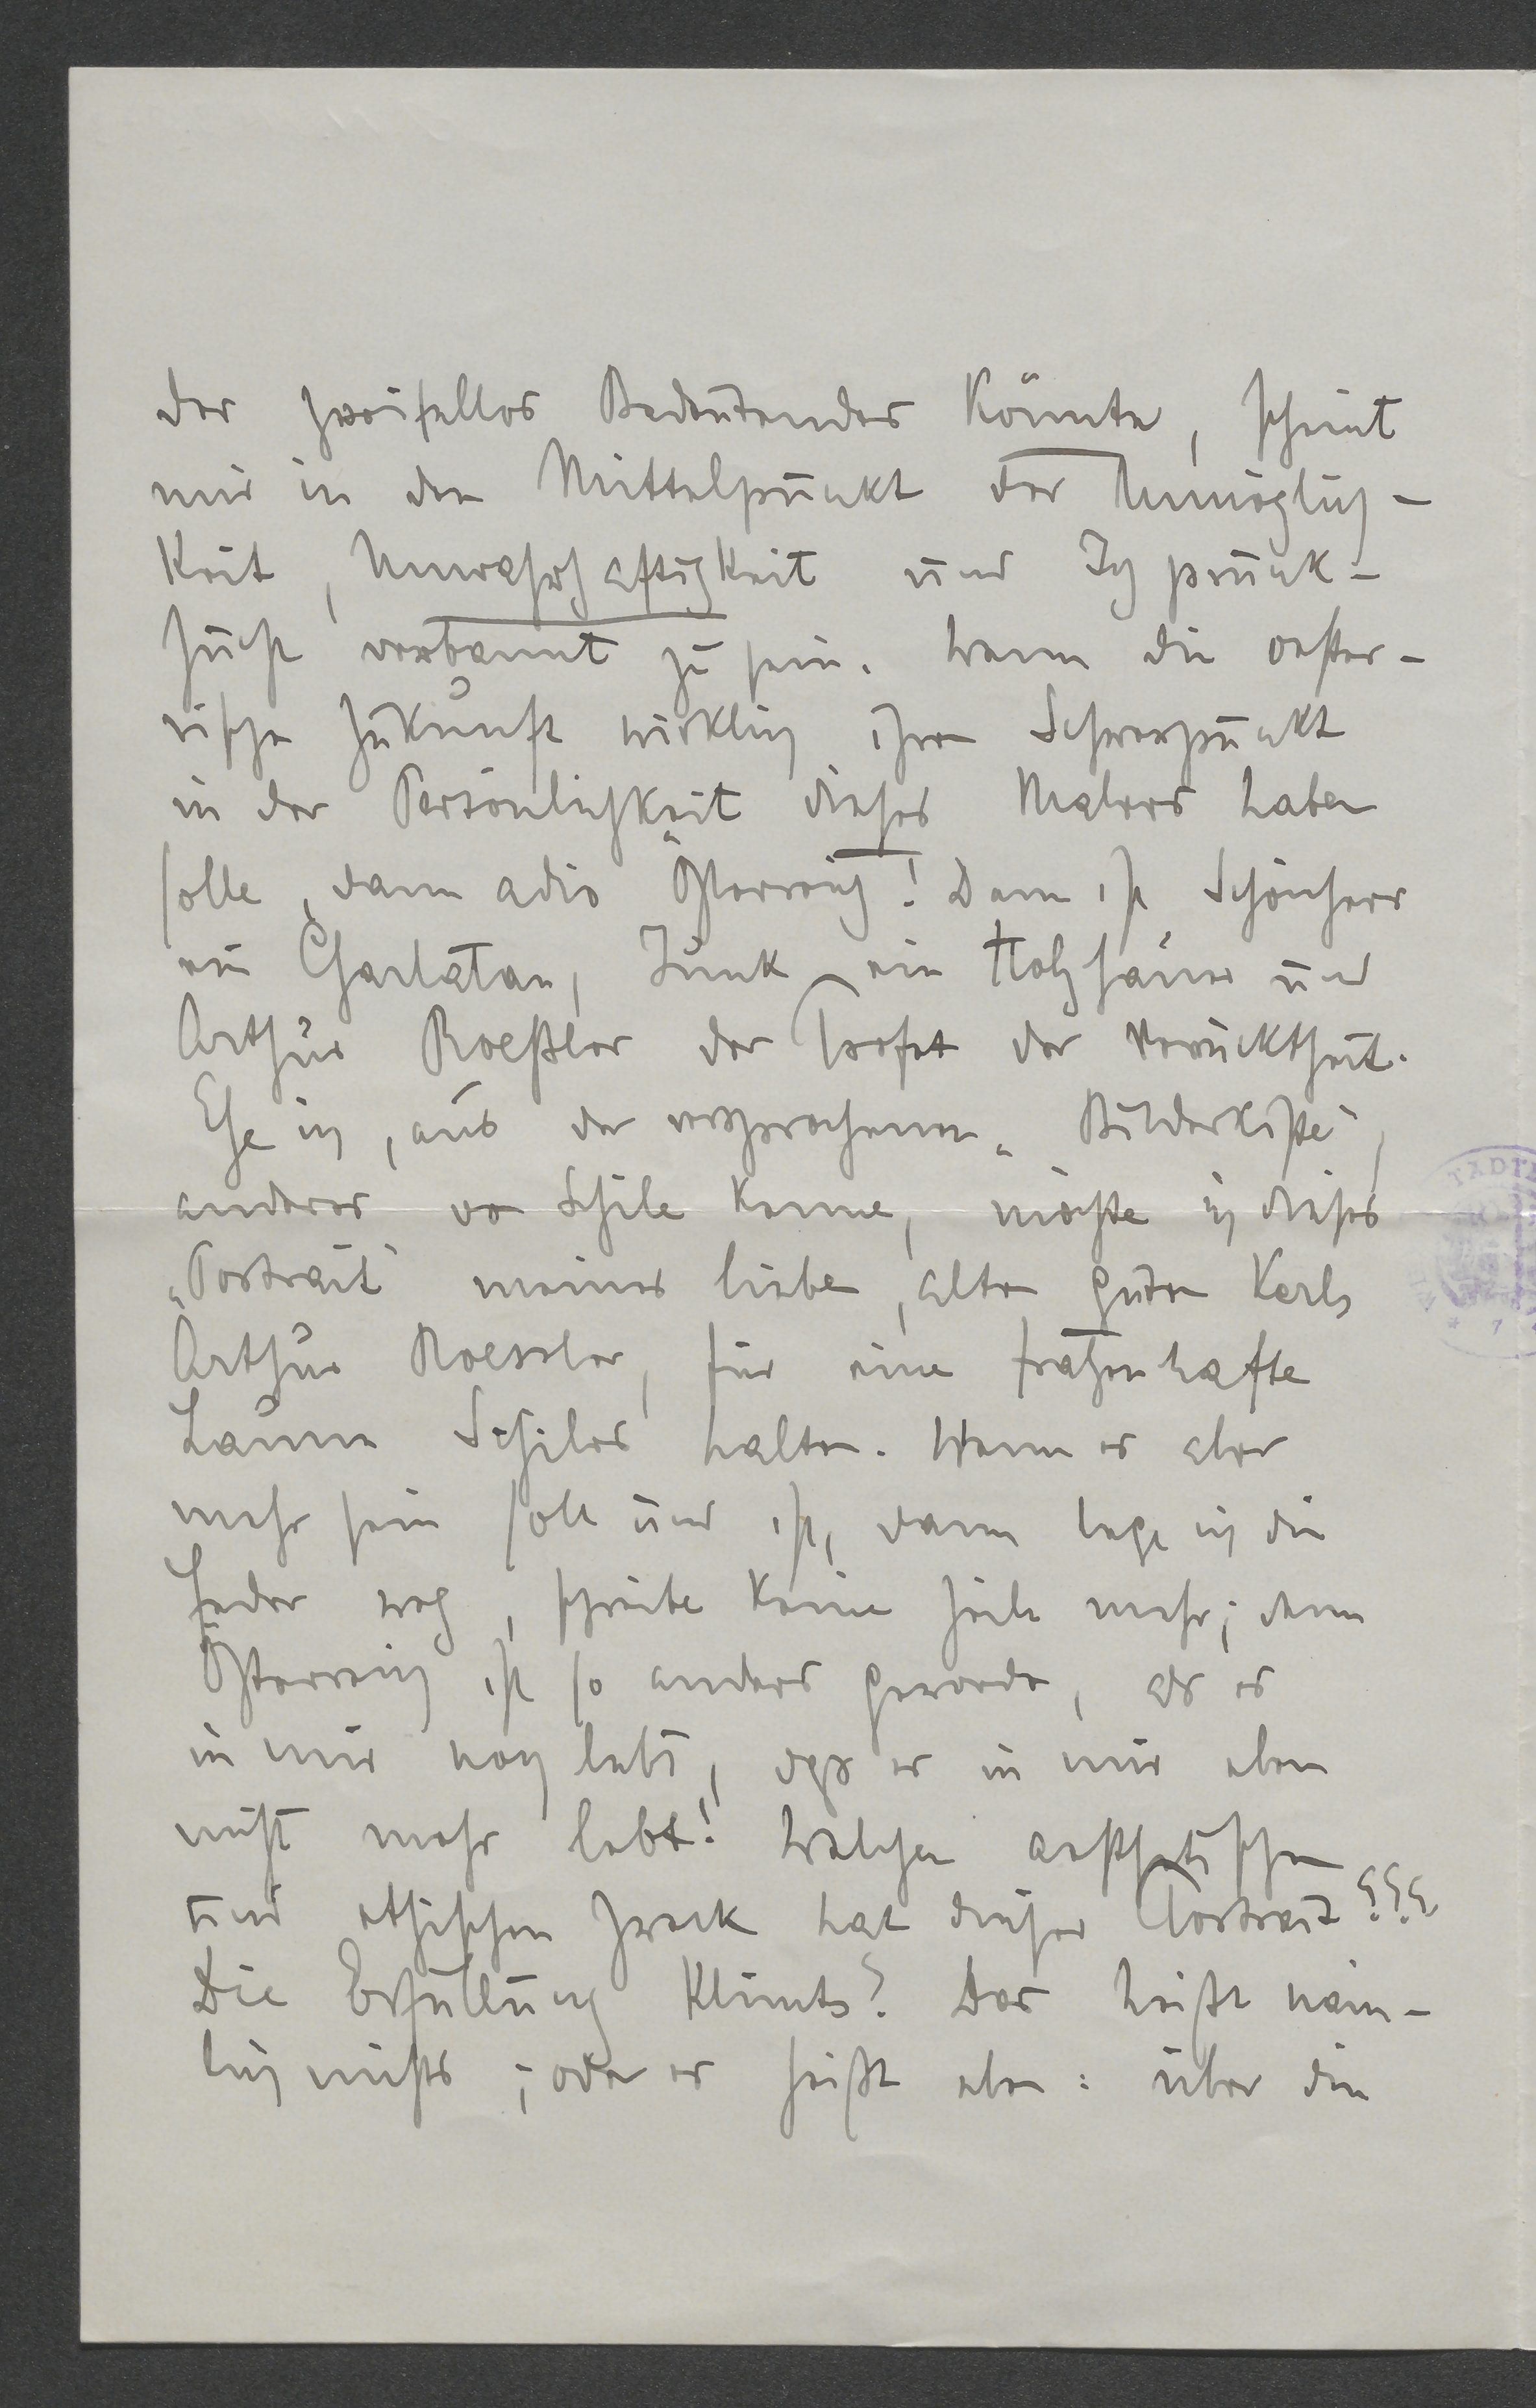 der zweifellos Bedeutendes könnte, scheint
mir in den Mittelpunkt der Unmöglich-
keit, Unwahrhaftigkeit und Ichprunk-
sucht verbannt zu sein. Wenn die oester-
rische Zukunft wirklich ihren Schwerpunkt
in der Persönlichkeit dieses Malers haben
solle, dann adio Österreich! Dann ist Schönherr
ein Charlatan, Junk ein Holzhäuer und
Arthur Roeßler der Profet der Verücktheit.
Ehe ich, aus der versprochenen „Bilderkiste",
anderes von Schile kenne, möchte ich dieses
„Portrait" meines lieben, alten guten Kerls
Arthur Roessler, für eine fratzenhafte
Laune Schiles halten. Wenn es aber
mehr sein soll und ist, dann lege ich die
Feder weg, schreibe keine Zeile mehr; denn
Österreich ist so anders geworden, als es
in mir noch lebt, dass es in mir eben
nicht mehr lebt! Welchen aesthetischen
und ethischen Zweck hat dieses Portrait???
Die Erfüllung Klimts? Das heißt näm-
lich nichts; oder es heißt eben: über den